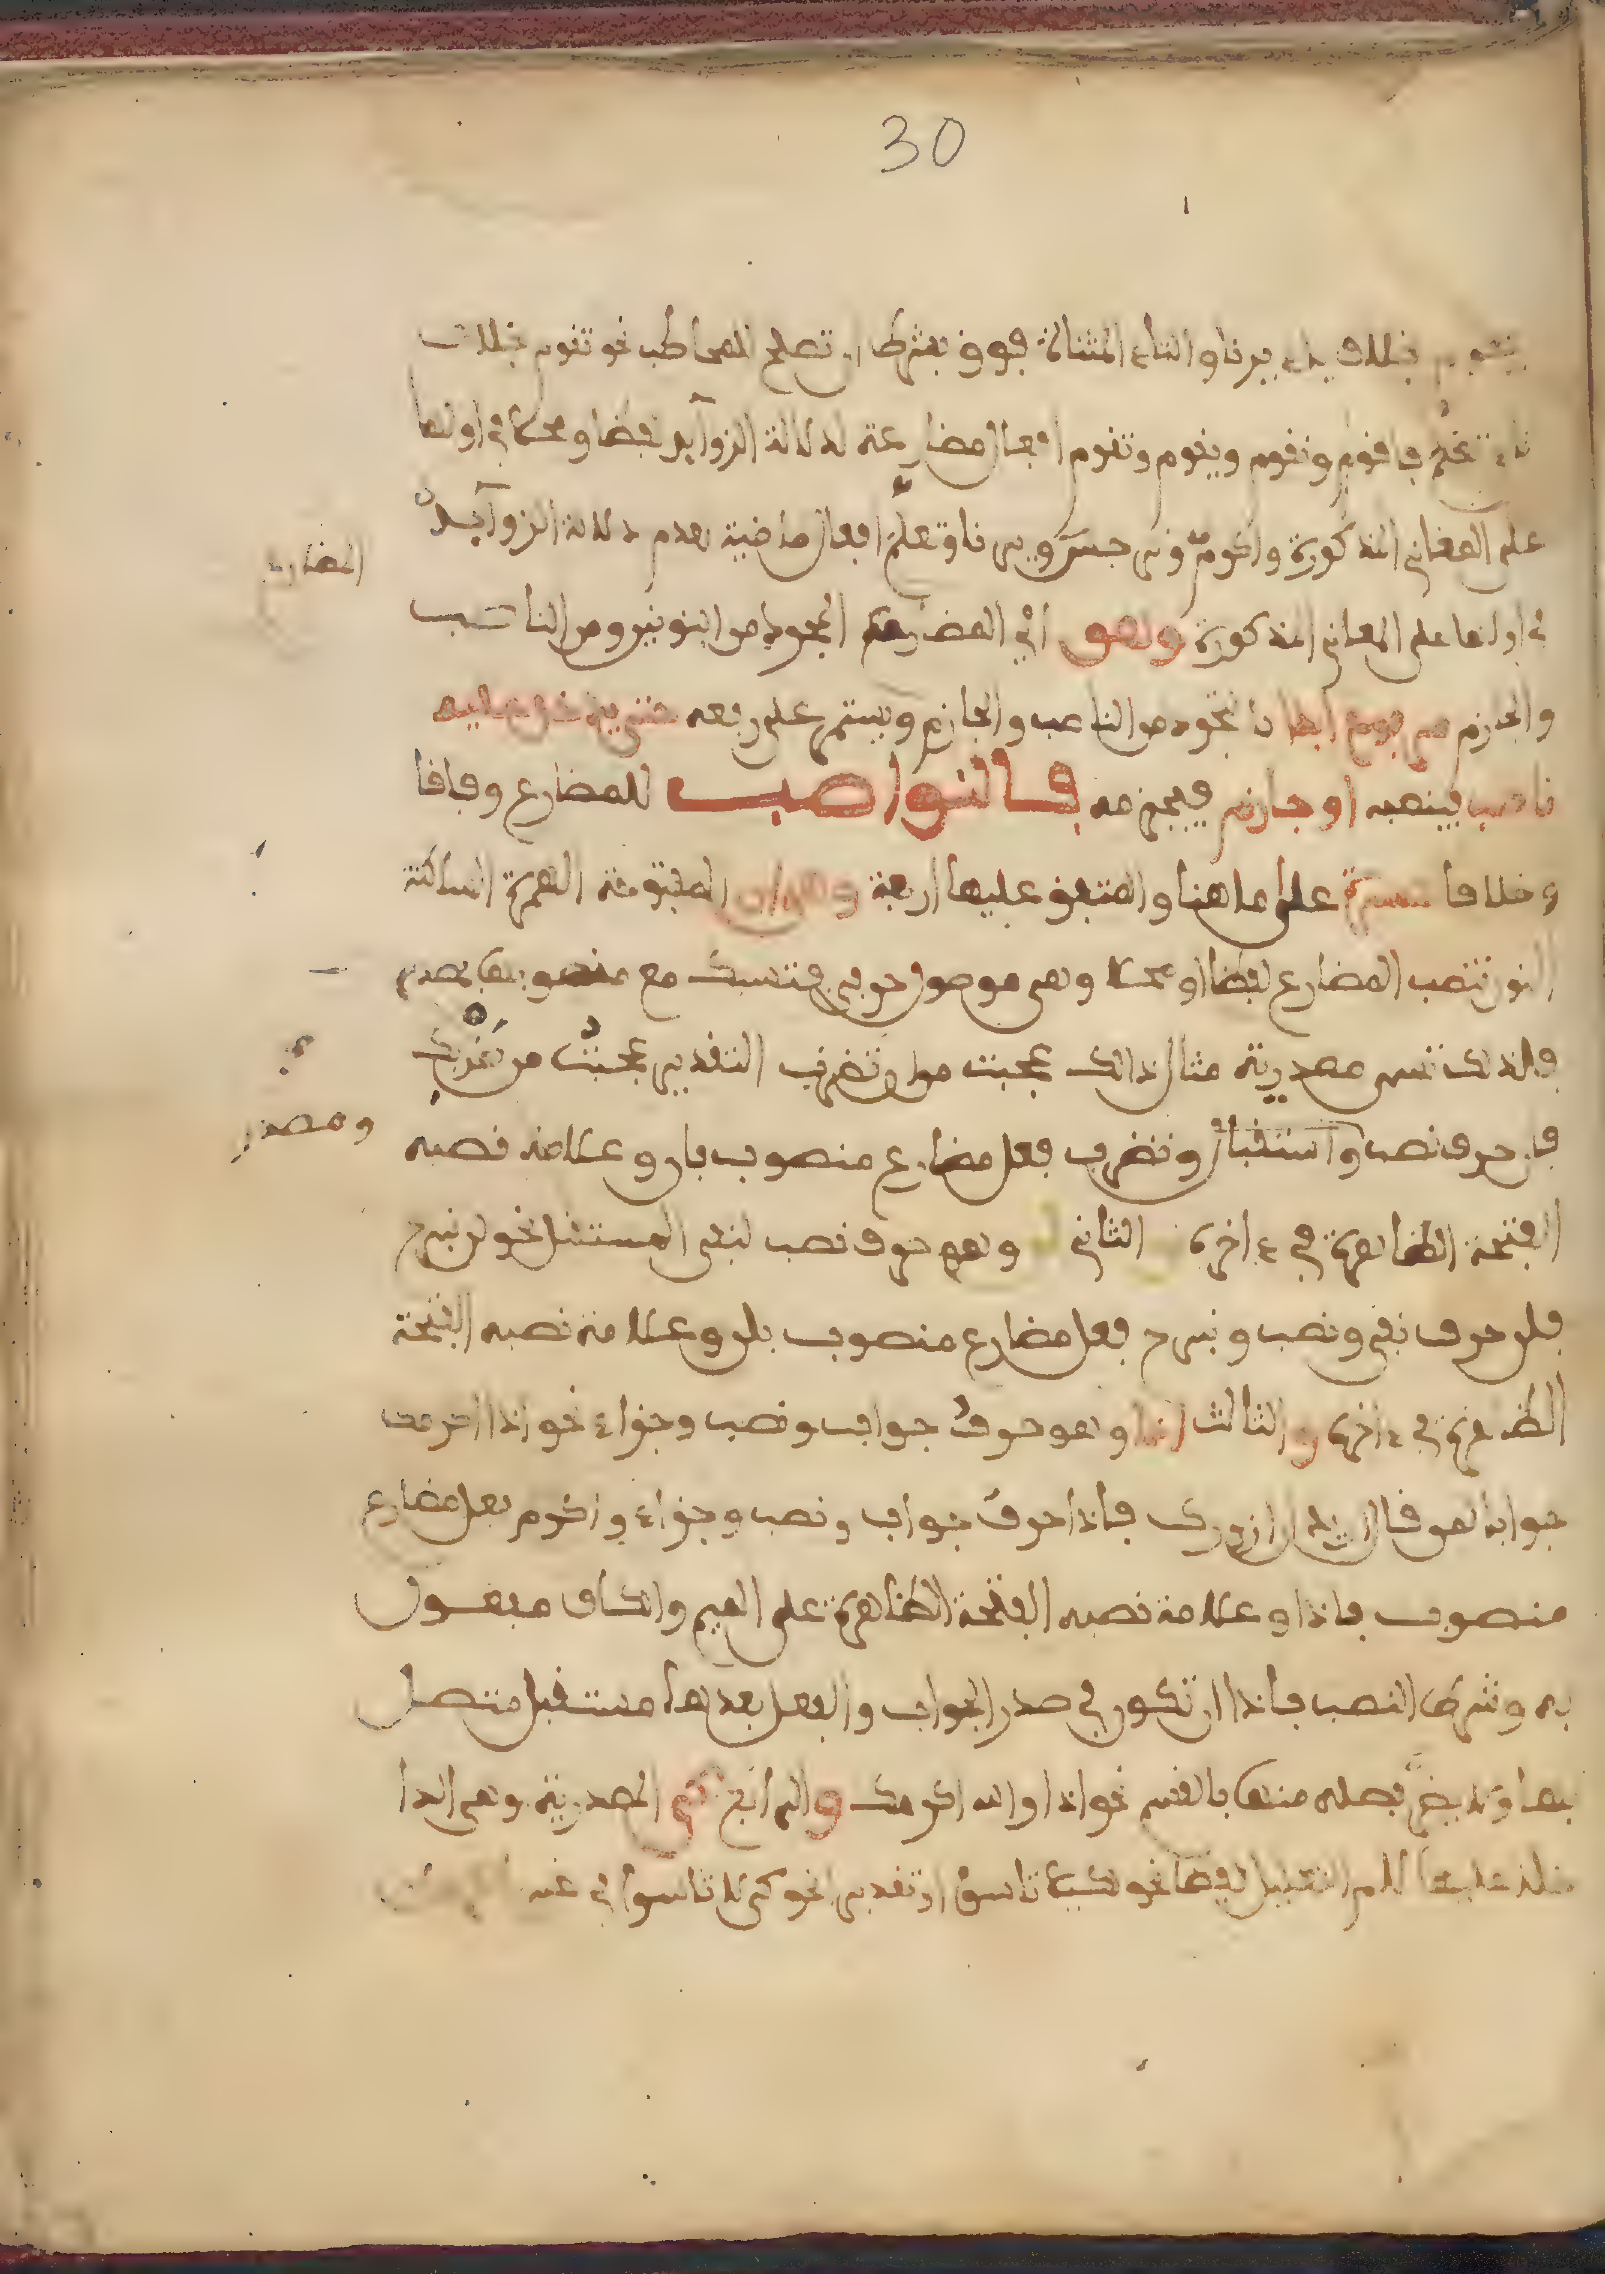 30
يقوم بخلاف ياء يرنا والتاء المثناة فوق بشرط ان تصلح للمخاطب نحو تقوم بخلاف
تاء تعلم فاقوم ونقوم ويقوم وتقوم افعال مضارعة لدلالة الزوايد لفظا ومحلا في اولها
على المعاني المذكورة واكرم ونرجس ويرنا وتعلم افعال ماضية لعدم دلالة الزوآيد
المضارعة
في اولها على المعاني المذكورة وهو أي المضارع المجرد من النونين ومن الناصب
والجازم مرفوع ابدا ما تجرد من الناصب والجازم ويستمر على رفعه حتى يدخل عليه
ناصب فينصبه او جازم فيجزمه فالنواصب للمضارع وفاقا
وخلافا عشرة على ما هنا والمتفق عليها اربعة وهي ان المفتوحة الهمزة الساكنة
النون تنصب المضارع لفظا او محلا وهي موصول حرفي فتسبك مع منصوبها بمصدر
فلذلك تسمى مصدرية مثال ذالك عجبت من ان تضرب التقدير عجبت من ضربك
ومصدر
فان حرف نصب واستقبال وتضرب فعل مضارع منصوب بان وعلامة نصبه
الفتحة الظاهرة في ءاخره الثاني لن وهو حرف نصب لنفي المستقبل نحو لن نبرح
فلن حرف نفي ونصب ونبرح فعل مضارع منصوب بلن وعلامة نصبه الفتحة
الظاهرة في ءاخره والثالث اذا وهو حرف جواب ونصب وجزاء نحو اذا اكرمك
جوابا لمن قال اريد ان ازورك فاذا حرف جواب ونصب وجزاء واكرم فعل مضارع
منصوب باذا وعلامة نصبه الفتحة الظاهرة على الميم والكاف مفعول
به وشرط النصب باذا ان تكون في صدر الجواب والفعل بعدها مستقبل متصل
بها ولا يضر فصله منها بالقسم نحو اذا والله اكرمك والرابع كي المصدرية وهي الدا
خلة عليها لام التعليل لفظا نحو لكيلا تاسوا او تقديرا نحو كي لا تاسوا في